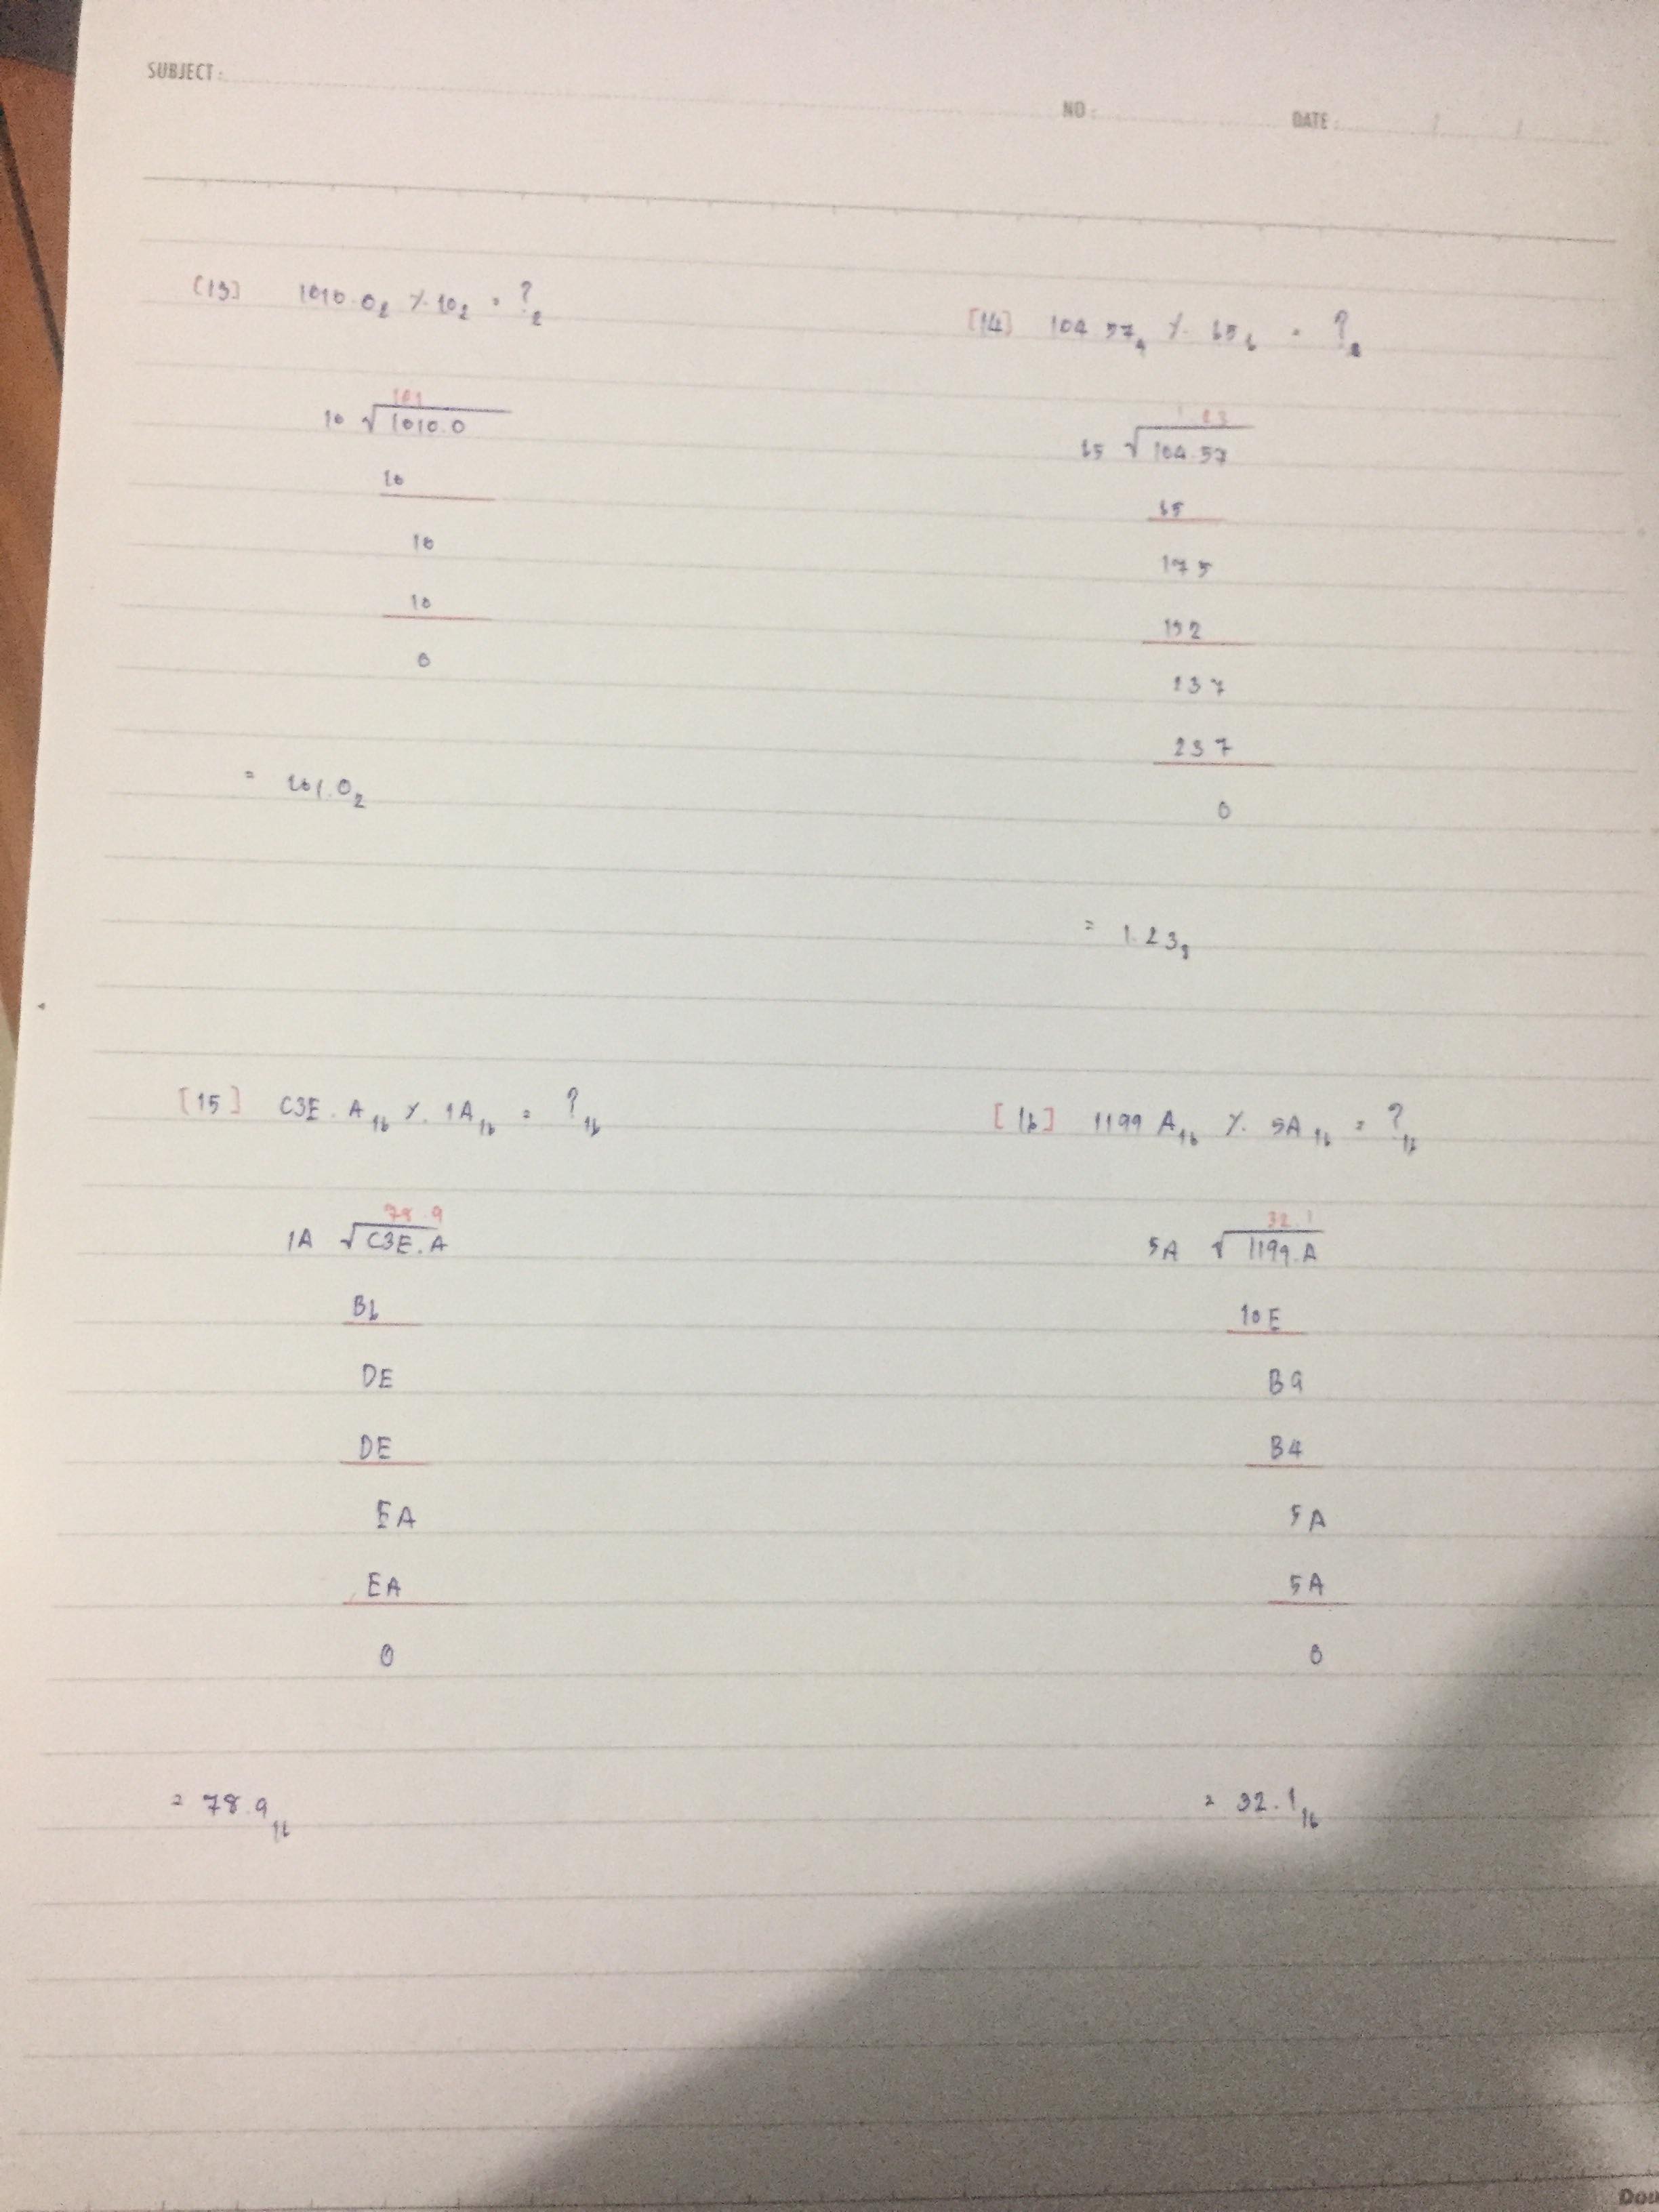 SUBJECT :
NO :
DATE : / /
[13] 1010.0₂ ٪ 10₂ = ?₂
101
10 √1010.0
10
10
10
0
= 101.0₂
[14] 104.57 ٪ 65 = ?
1.23
65 √104.57
65
175
152
237
237
0
= 1.23₈
[15] C3E.A₁₆ ٪ 1A₁₆ = ?₁₆
78.9
1A √C3E.A
B6
DE
DE
EA
EA
0
= 78.9₁₆
[16] 1199 A₁₆ ٪ 5A₁₆ = ?₁₆
32.1
5A √1199.A
10E
B9
B4
5A
5A
0
= 32.1₁₆